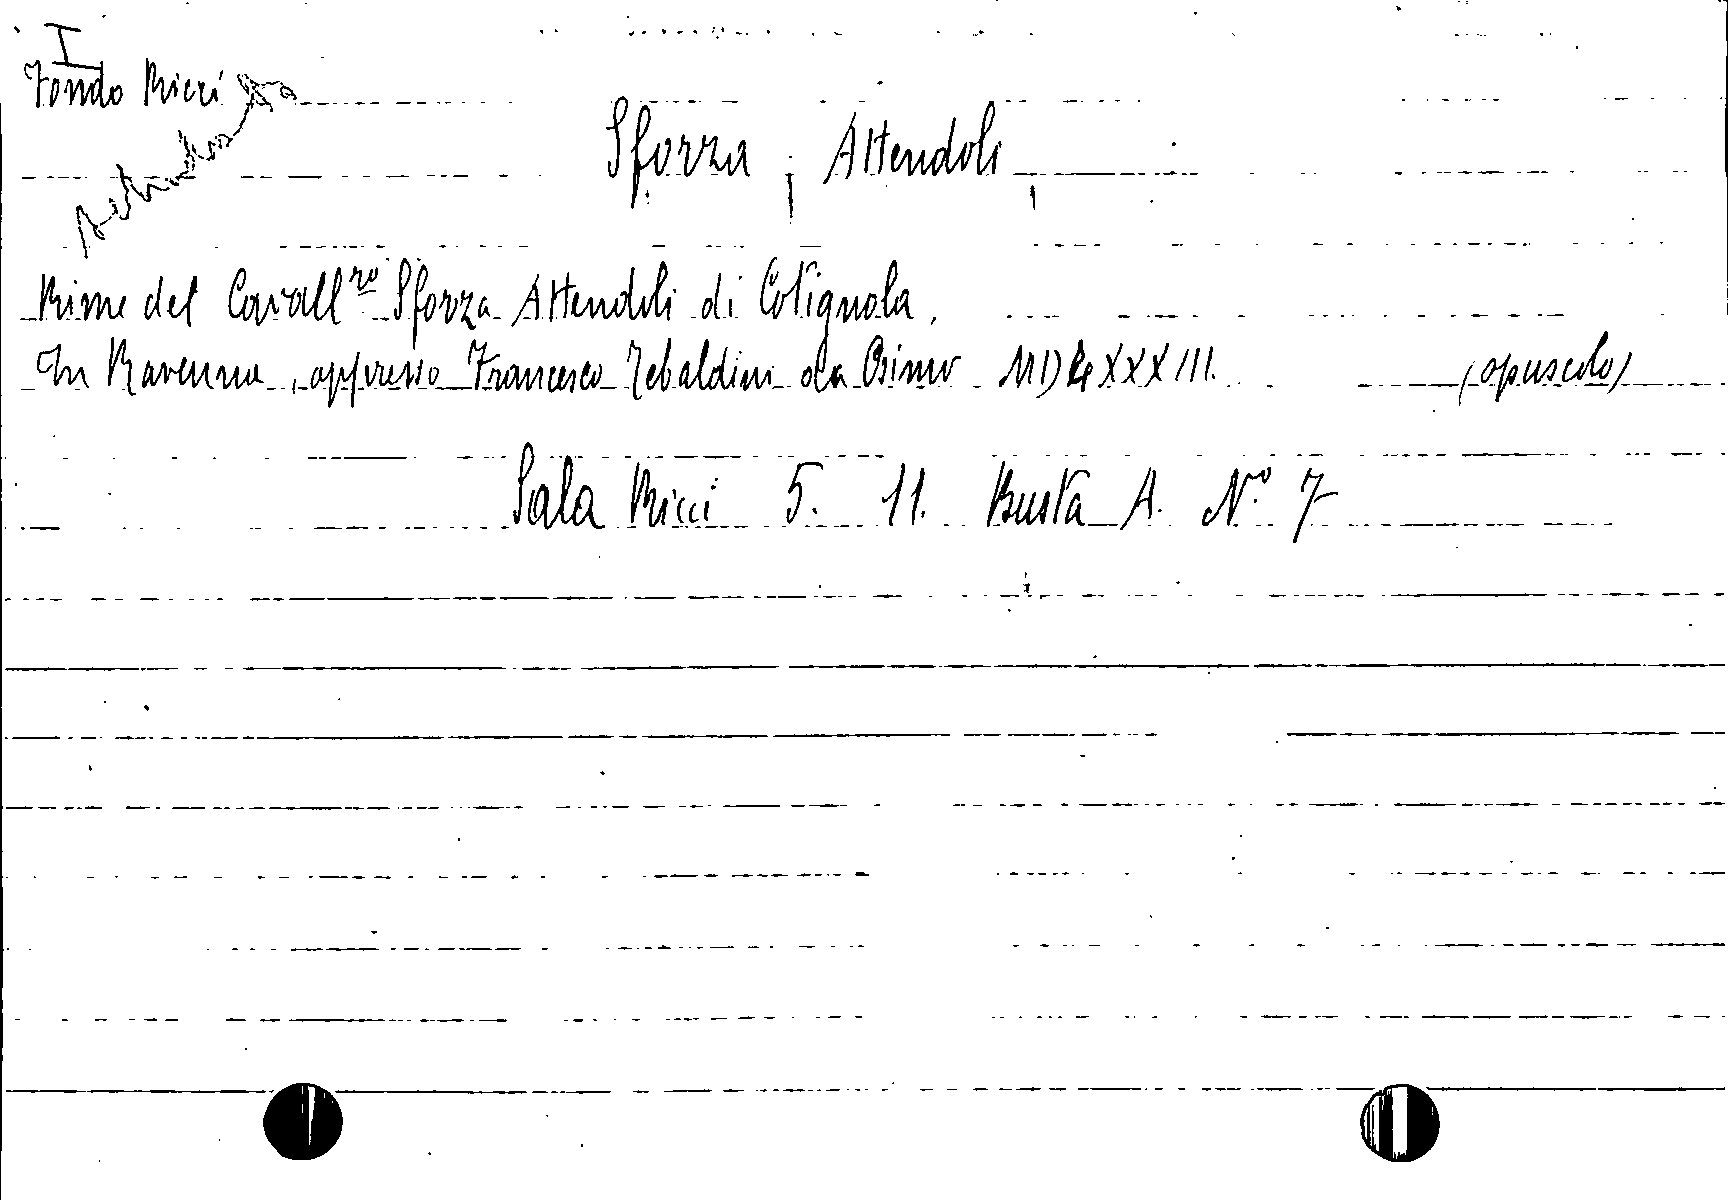 I
Fondo Ricci
Sforza, Attendoli
Rime del Cavall.ro Sforza Attendoli di Cotignola.
In Ravenna, appresso Francesco Tebaldini da Osimo MDLXXXIII. (opuscolo)
Sala Ricci 5. 11. Busta A. N.° 7